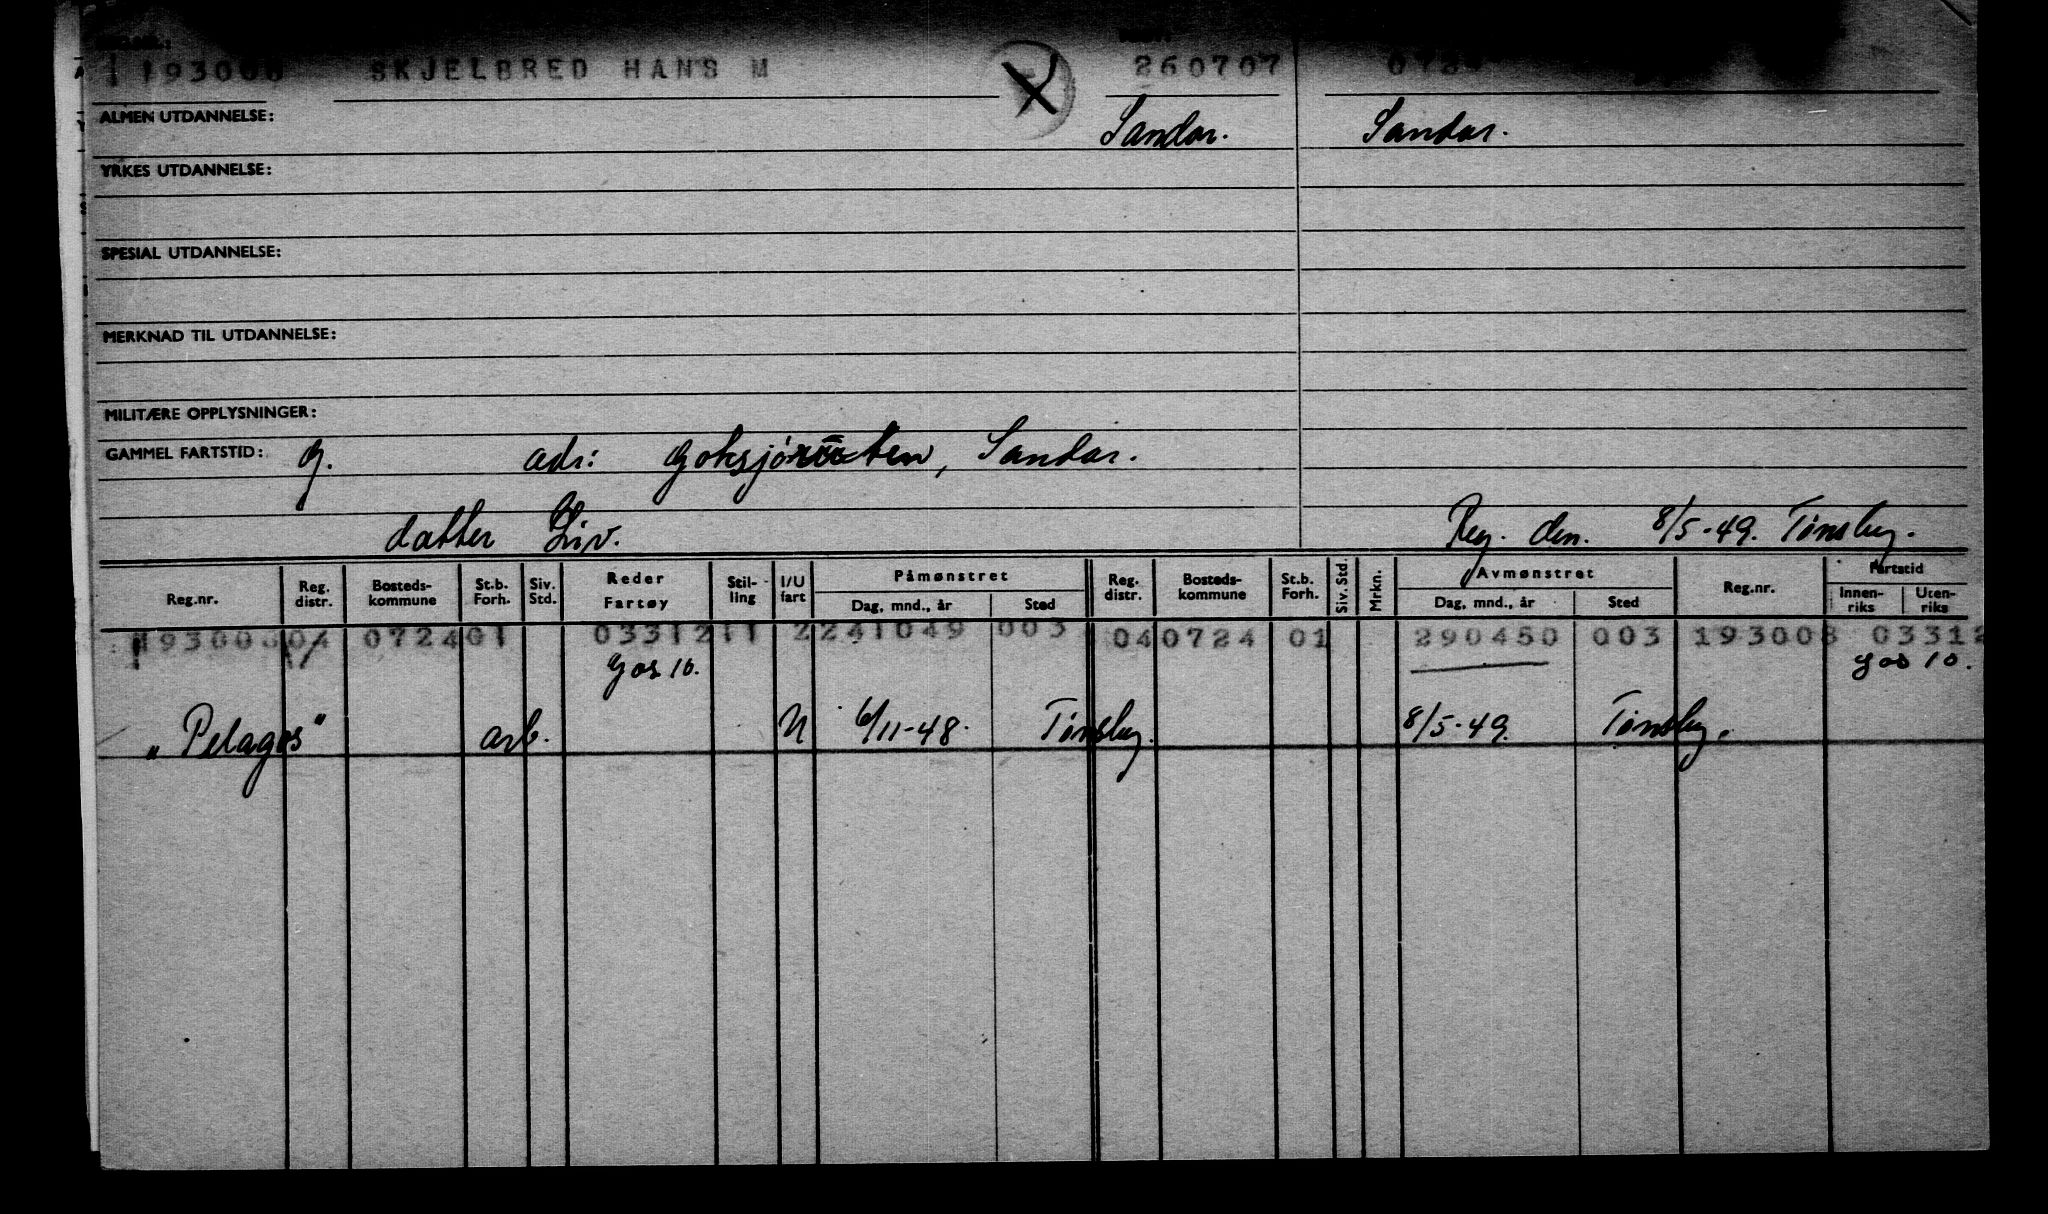 193008 SKJELBRED HANS M 260707
ALMEN UTDANNELSE: Sandar. Sandar.
YRKES UTDANNELSE:
SPESIAL UTDANNELSE:
MERKNAD TIL UTDANNELSE:
MILITÆRE OPPLYSNINGER:
GAMMEL FARTSTID: G. adr: Sandar.
datter Liv. Reg. den. 8/5-49. Tønsberg.
Reg.nr. Reg. distr. Bosteds-kommune St.b. Forh. Siv. Std. Reder Fartøy Stil-ling I/U fart Påmønstret Dag, mnd., år Sted Reg. distr. Bosteds-kommune St.b. Forh. Siv. Std. Mrkn. Avmønstret Dag, mnd., år Sted Reg.nr. Fartstid Innen-riks Uten-riks
193008 04 0724 01 03312 11 2 241049 003 04 0724 01 290450 003 193008 03312
Gos 10. Gos 10.
"Pelagos" arb. U 6/11-48. Tønsberg. 8/5-49. Tønsberg.